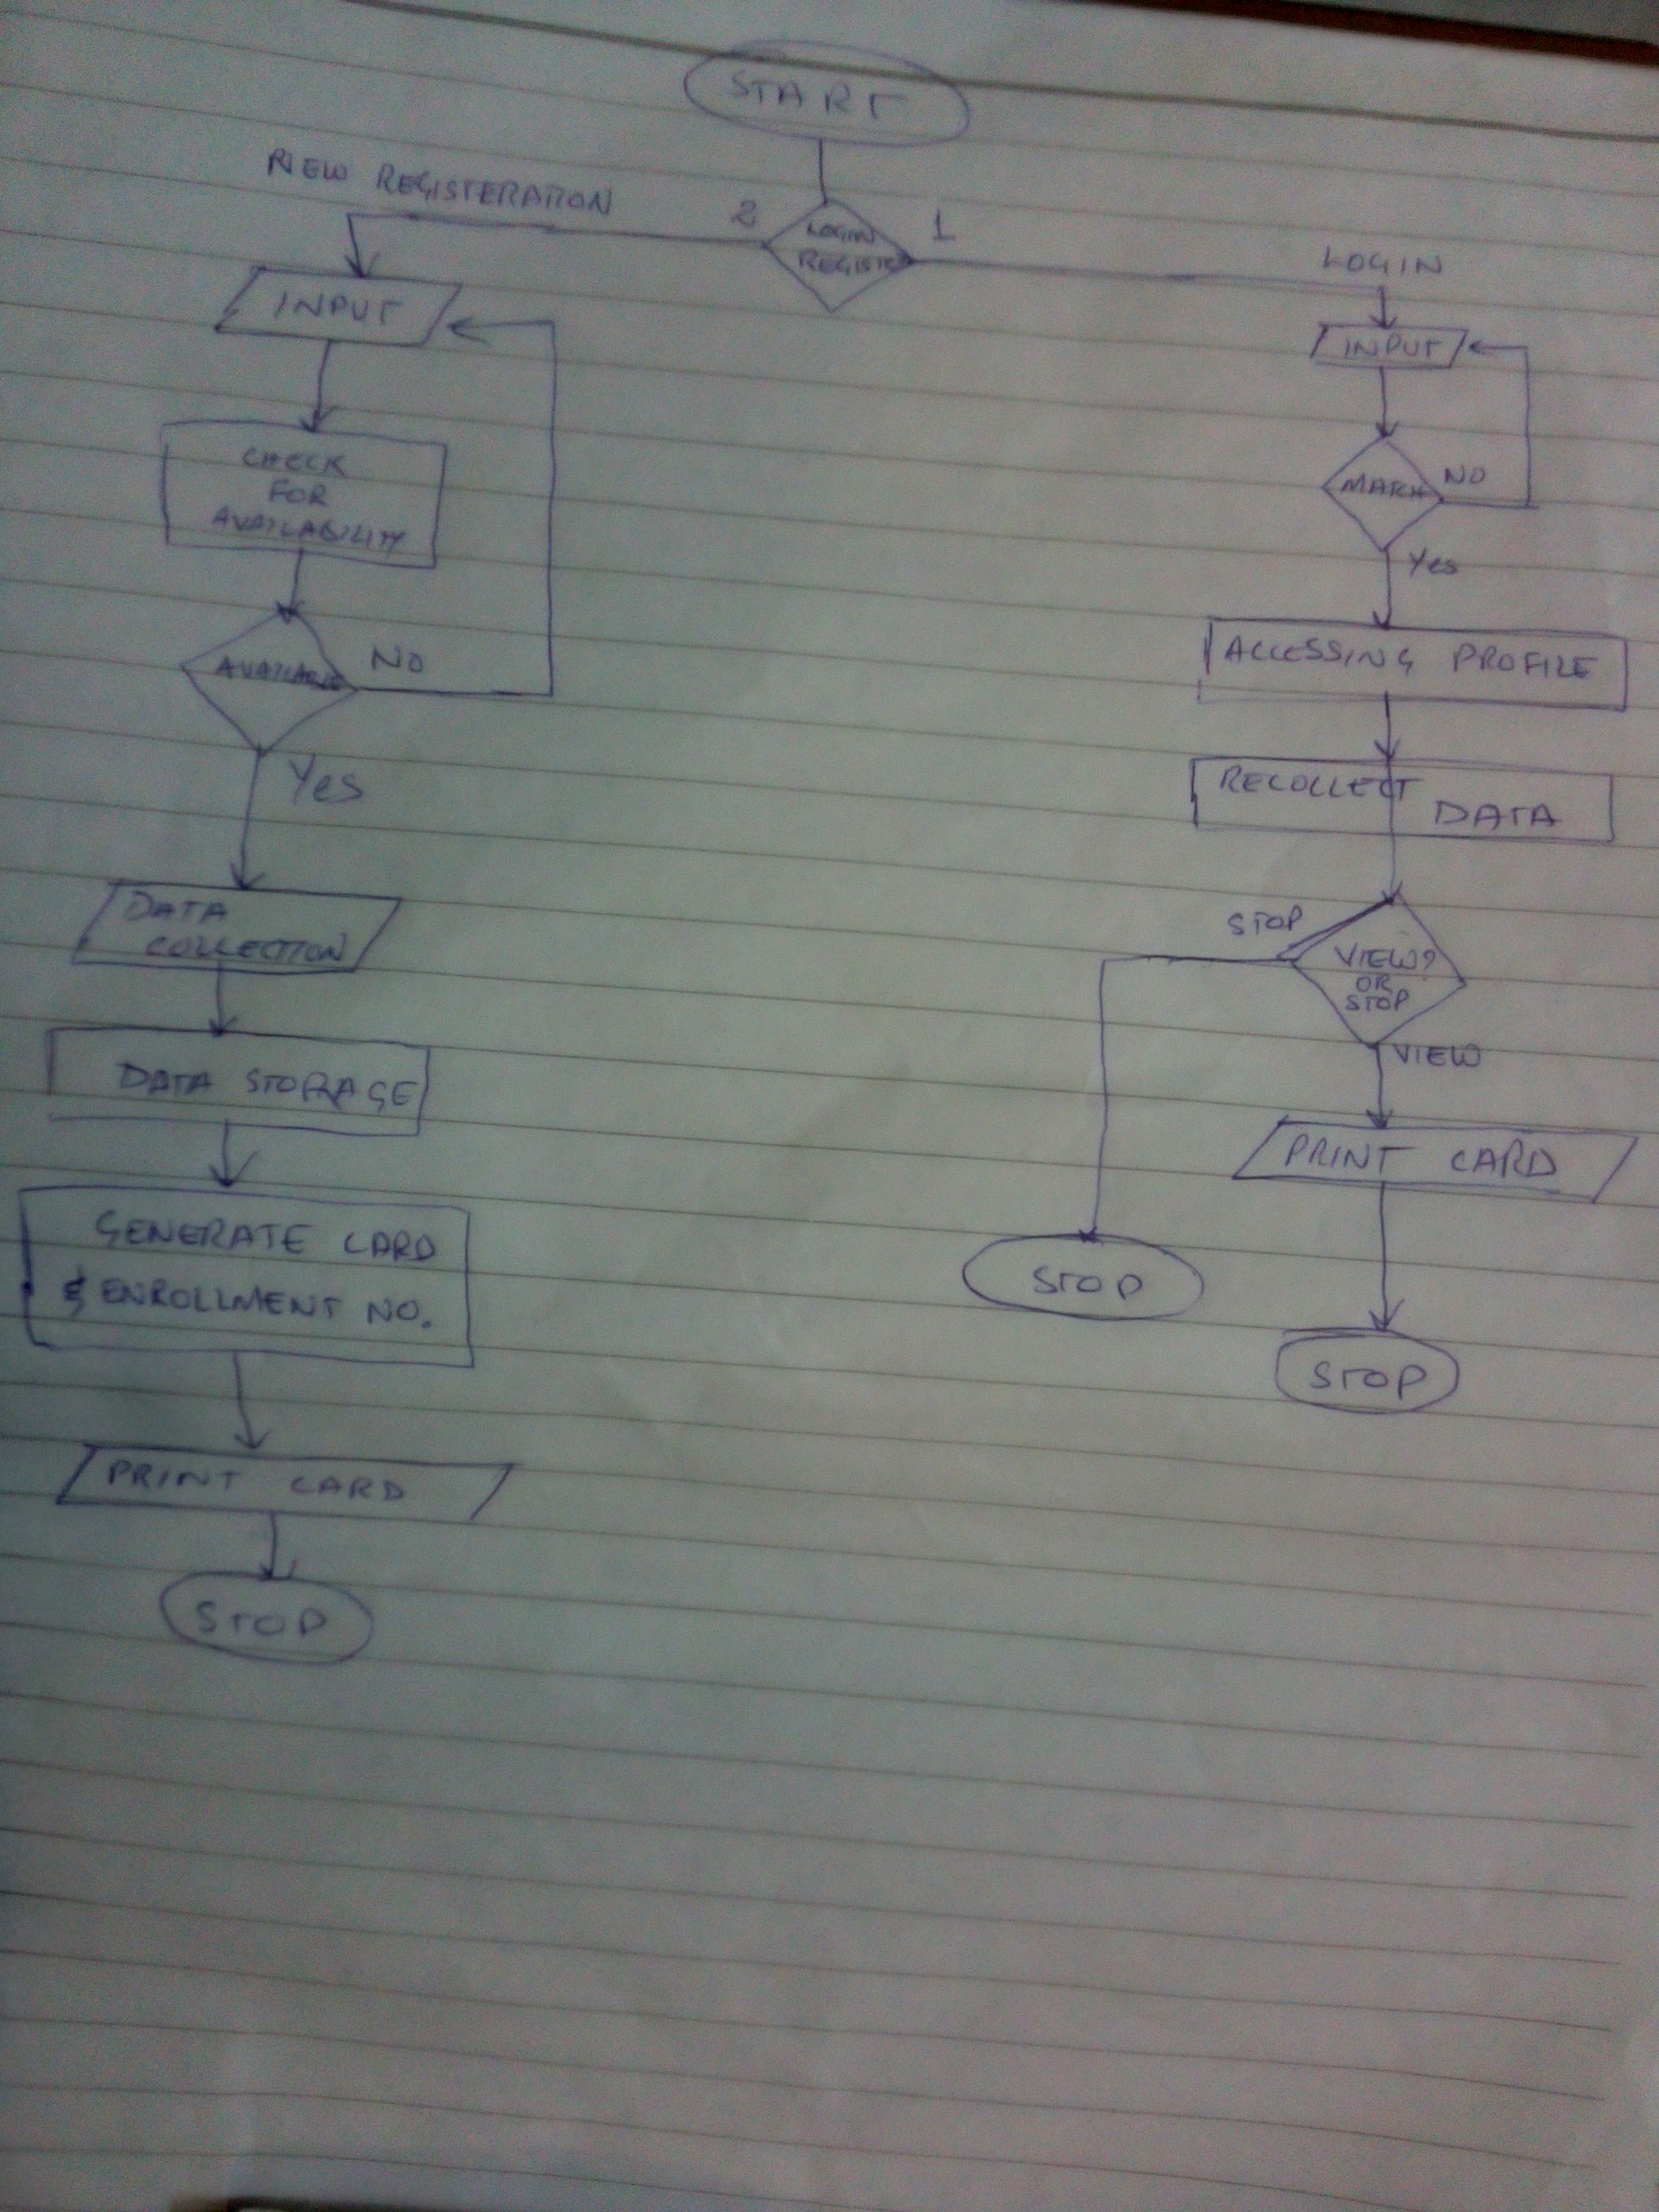 START
NEW REGISTERATION
2
LOGIN
REGISTER
1
LOGIN
INPUT
CHECK
FOR
AVAILABILITY
AVAILABLE
NO
Yes
DATA
COLLECTION
DATA STORAGE
GENERATE CARD
& ENROLLMENT NO.
PRINT CARD
STOP
INPUT
MATCH
NO
Yes
ACCESSING PROFILE
RECOLLECT
DATA
STOP
VIEW?
OR
STOP
VIEW
PRINT CARD
STOP
STOP